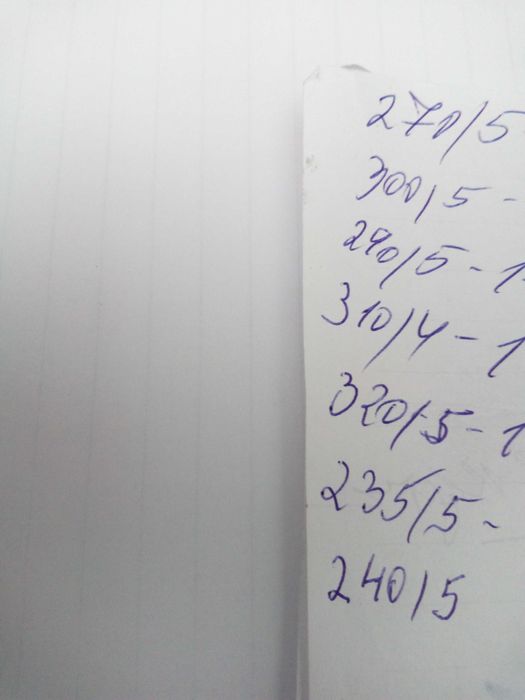 270/5
300/5 -
240/5 - 1
310/4 - 1
320/5 - 1
235/5 -
240/5